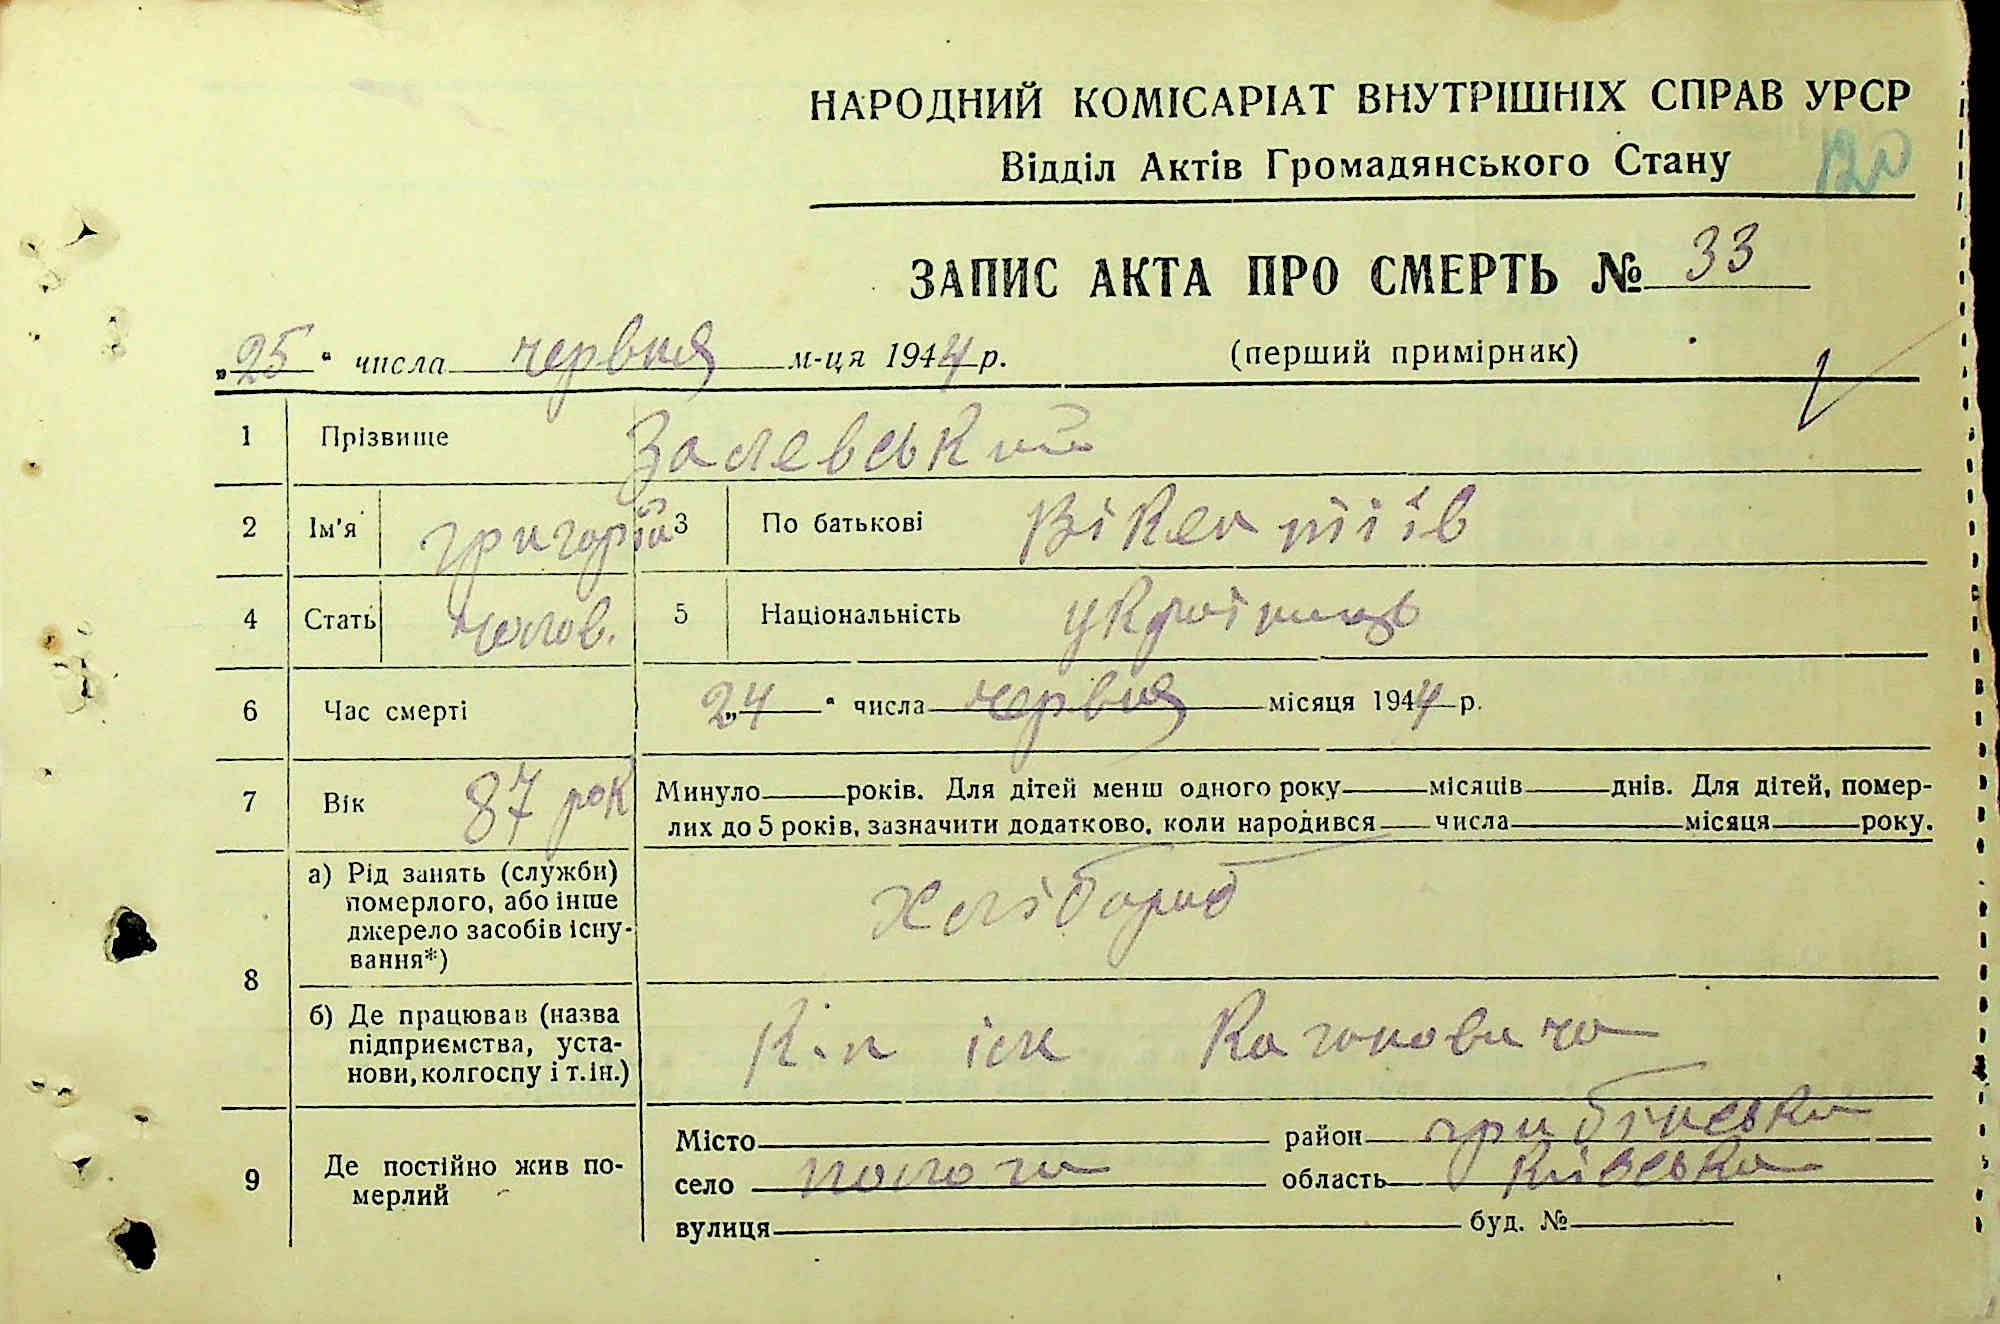 НАРОДНИЙ КОМІСАРІАТ ВНУТРІШНІХ СПРАВ УРСР
Відділ Актів Громадянського Стану
120
ЗАПИС АКТА ПРО СМЕРТЬ № 33
„25“ числа червня м-ця 1944 р. (перший примірник)
1 Прізвище Залевський
2 Ім'я Григорій 3 По батькові Вікентіїв
4 Стать чолов. 5 Національність українець
6 Час смерті „24“ числа червня місяця 1944 р.
7 Вік 87 рок Минуло років. Для дітей менш одного року місяців днів. Для дітей, помер-
лих до 5 років, зазначити додатково, коли народився числа місяця року.
8 а) Рід занять (служби)
померлого, або інше
джерело засобів існу-
вання*) хлібороб
б) Де працював (назва
підприємства, уста-
нови, колгоспу і т.ін.) К-п ім Кагановича
9 Де постійно жив по-
мерлий
Місто район
село область Київська
вулиця буд. №